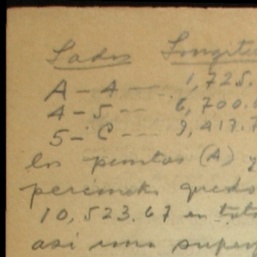 Lados Longitu
A - A --- 1,725.
4 - 5 --- 8,700.0
5 - C --- 9,417.7
los puntos (A) y
perimetro quedo
10,523.67 en tota
asi una super